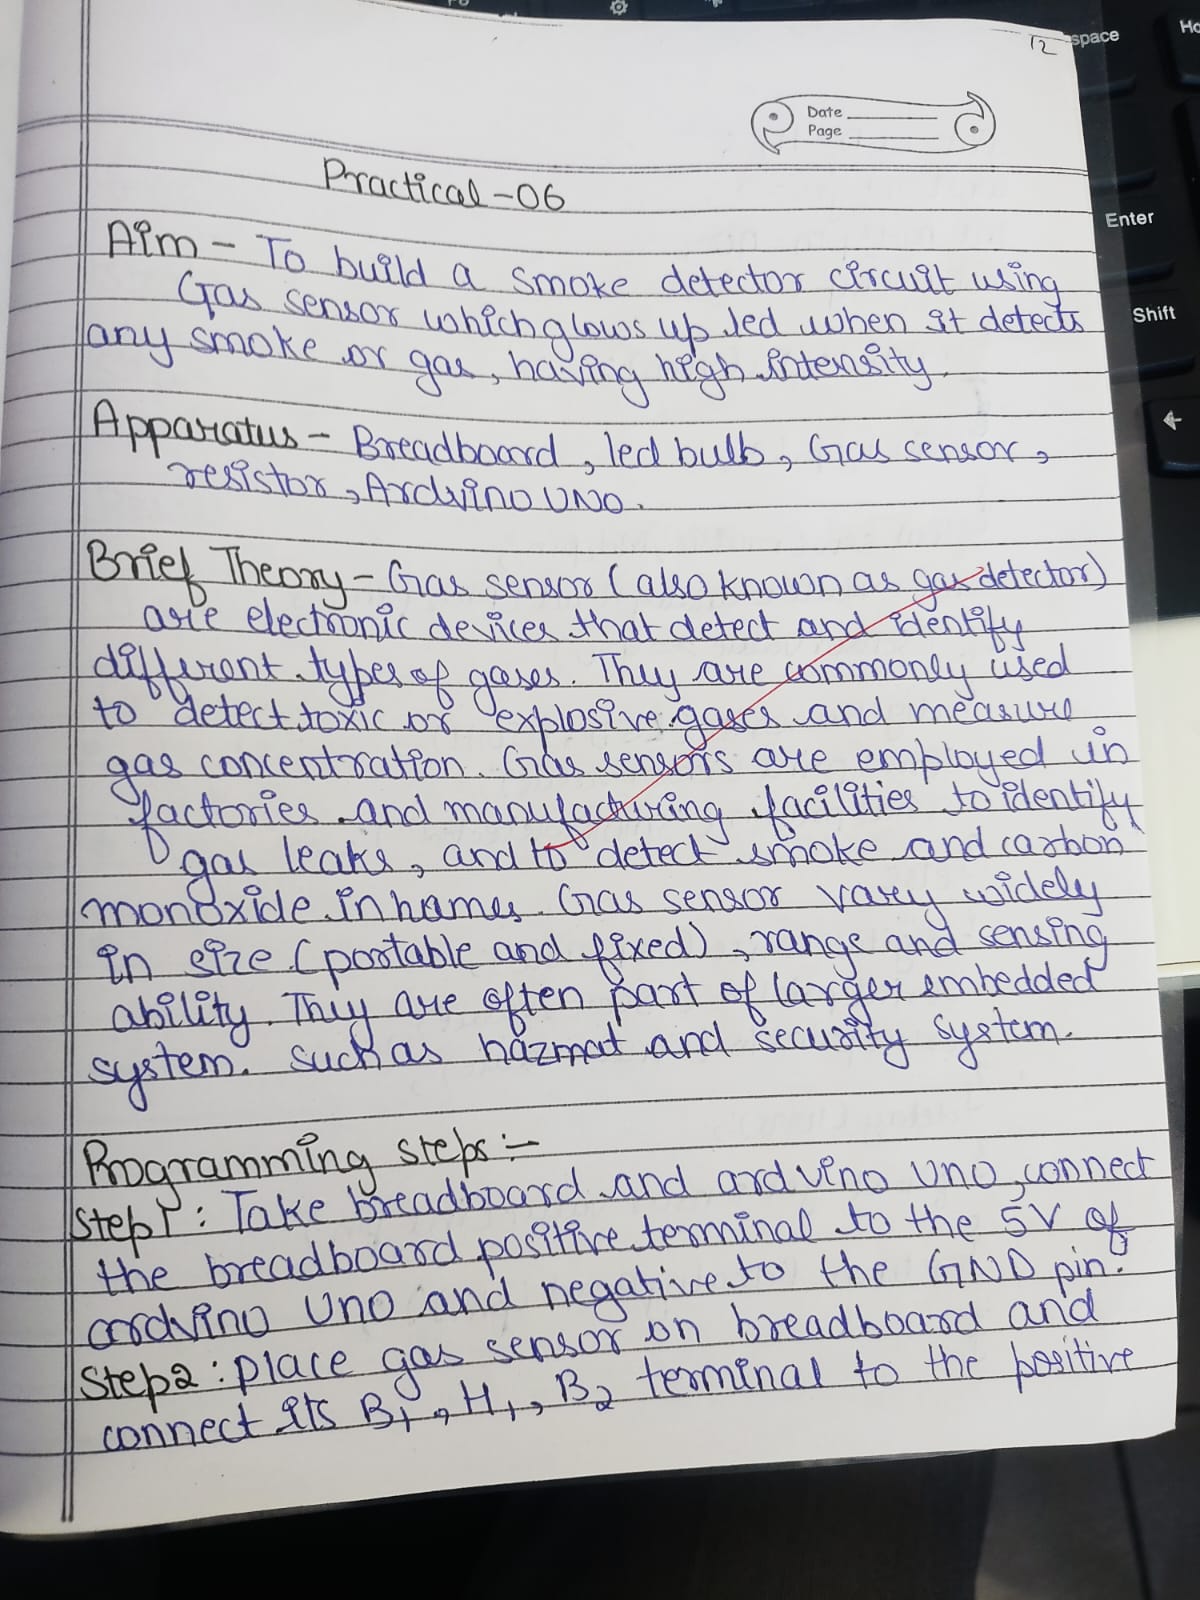 space
Ho
Enter
Shift
12
Date
Page
Practical-06
Aim - To build a smoke detector circuit using
Gas sensor which glows up led when it detects
any smoke or gas, having high intensity.
Apparatus - Breadboard, led bulb, Gas sensor,
resistor, Arduino UNO.
Brief Theory - Gas sensor (also known as gas detector)
are electronic devices that detect and identify
different types of gases. They are commonly used
to detect toxic or explosive gases and measure
gas concentration. Gas sensors are employed in
factories and manufacturing facilities to identify
gas leaks, and to detect smoke and carbon
monoxide in homes. Gas sensor vary widely
in size (portable and fixed), range and sensing
ability. They are often part of larger embedded
system. such as hazmat and security system.
Programming steps :-
Step 1 : Take breadboard and arduino UNO, connect
the breadboard positive terminal to the 5V of
arduino UNO and negative to the GND pin.
Step 2 : place gas sensor on breadboard and
connect its B1, H1, B2 terminal to the positive